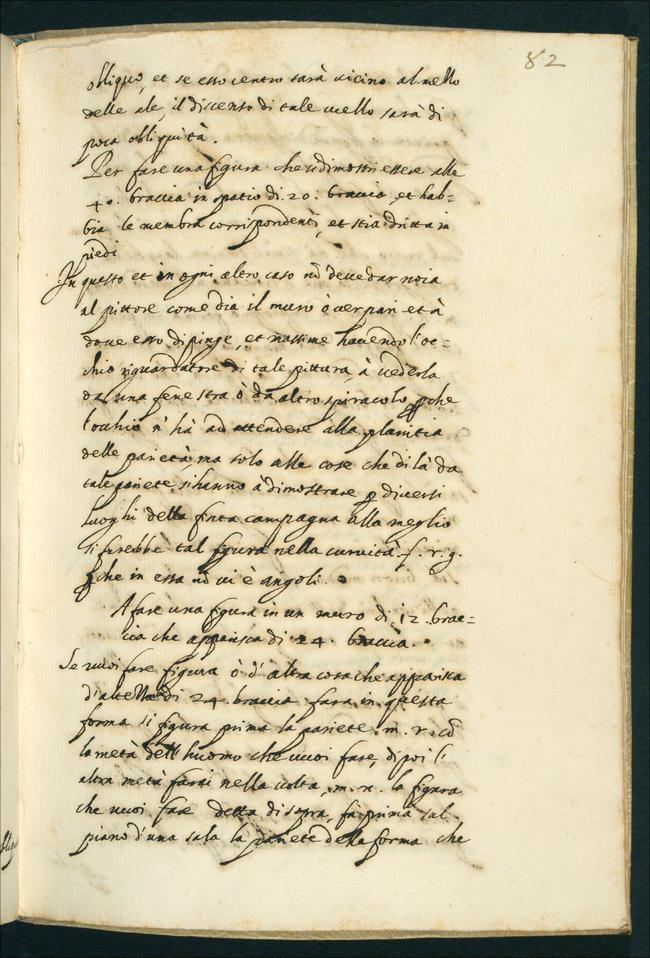 82
obliquo, et se esso centro sarà vicino al mezzo
delle ale, il discenso di tale ucello sarà di
poca obliquità.
Per fare una figura che si dimostri essere alta
40. braccia in spatio di. 20. braccia, et hab=
bia le membra corrispondenti, et stia dritta in
piedi
In questo et in ogni altro caso nō deve dar noia
al pittore come dia il muro ò ver parietà
dove esso dipinge, et massime havendo l'oc=
chio riguardatore di tale pittura, à vederla
da una fenestra ò da altro spiracolo, ꝑche
l'occhio n' hà ad attendere alla planitia
delle parietà, ma solo alle cose che di là da
tale pariete, si hanno à dimostrare ꝑ diversi
luoghi della finta campagna alla meglio
si farebbe tal figura nella curvità. f. r. g.
ꝑche in essa nō vi è angoli.
A fare una figura in un muro di. 12. brac=
cia che apparisca di 24. braccia.
Se vuoi fare figura ò d' altra cosa che apparisca
d'altezza di 24. braccia fara in questa
forma si figura prima la pariete. m. r. cō
la metà dell' huomo che vuoi fare, di poi l'
altra metà farai nella volta. m. n. la figura
che vuoi fare detta di sopra, fà prima sul
piano d'una sala la pariete della forma che